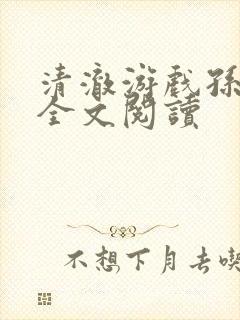 清澈游戏孙
全文閱讀
不想下月去喫